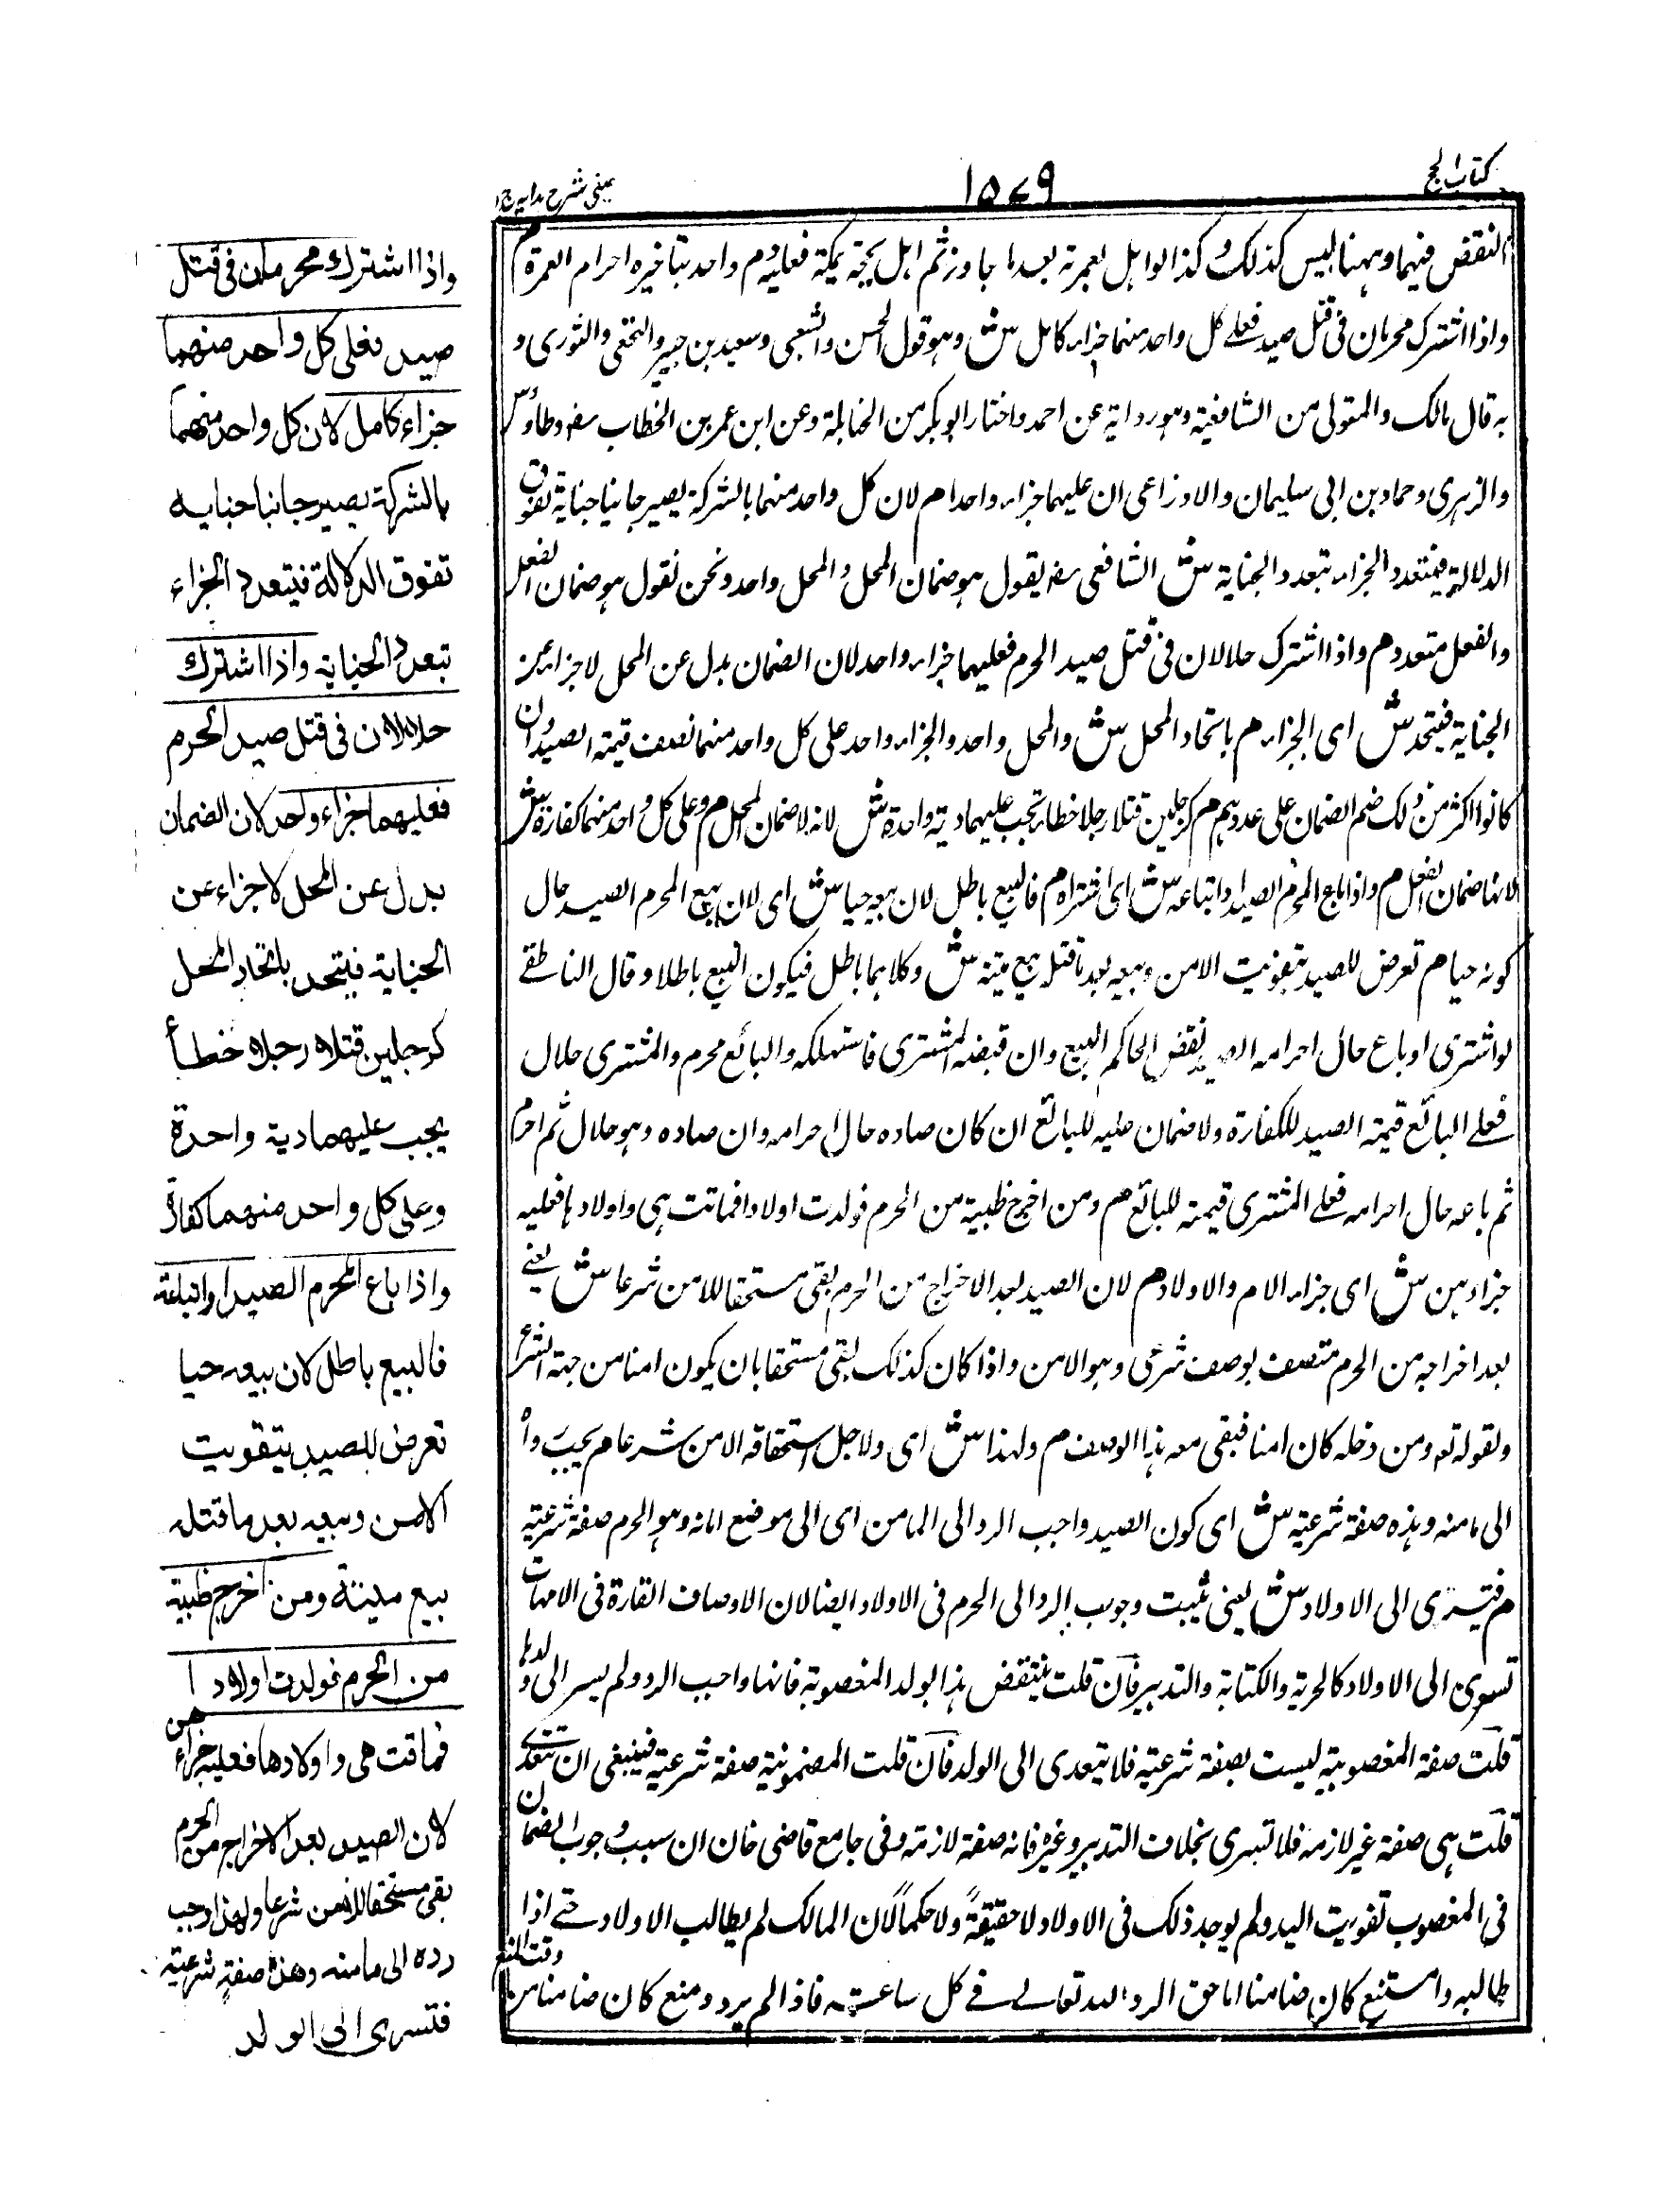 كتاب الحج
١٥٧٩
عينى شرح هدايه ج١
النقض فيهما وههنا ليس كذلك وكذا لو اهل بعمرة بعد ما جاوز ثم اهل بحجة بمكة فعليه دم واحد بتاخيره احرام العمرة م
واذا اشترك محرمان فى قتل صيد فعلى كل واحد منهما جزاء كامل ش وهو قول الحسن والشعبى وسعيد بن جبير والنخعى والثورى و
به قال مالك والمتولى من الشافعية وهو رواية عن احمد واختار ابو بكر من الحنابلة وعن ابن عمر بن الخطاب رض وطاؤس
والزهرى وحماد بن ابى سليمان والاوزاعى ان عليهما جزاء واحدا م لان كل واحد منهما بالشركة يصير جانيا جناية تفوق
الدلالة فيتعدد الجزاء بتعدد الجناية ش الشافعى رض يقول هو ضمان المحل والمحل واحد ونحن نقول هو ضمان الفعل
والفعل متعدد م واذا اشترك حلالان فى قتل صيد الحرم فعليهما جزاء واحد لان الضمان بدل عن المحل لا جزاء عن
الجناية فيتحد ش اى الجزاء م باتحاد المحل ش والمحل واحد والجزاء واحد على كل واحد منهما نصف قيمة الصيد وان
كانوا اكثر من ذلك ضم الضمان على عددهم م كرجلين قتلا رجلا خطأ تجب عليهما دية واحدة ش لانه لا ضمان المحل م وعلى كل واحد منهما كفارة ش
لانها ضمان الفعل م واذا باع المحرم الصيد او ابتاعه ش اى اشتراه م فالبيع باطل لان بيعه حيا ش اى لان بيع المحرم الصيد حال
كونه حيا م تعرض للصيد بتفويت الامن وبيعه بعد ما قتله بيع ميتة ش وكلاهما باطل فيكون البيع باطلا وقال الناطفى
لو اشترى او باع حال احرامه الصيد نقض الحاكم البيع وان قبضه المشترى فاستهلكه والبائع محرم والمشترى حلال
فعلى البائع قيمة الصيد للكفارة ولا ضمان عليه للبائع ان كان صاده حال احرامه وان صاده وهو حلال ثم احرم
ثم باعه حال احرامه فعلى المشترى قيمته للبائع م ومن اخرج ظبية من الحرم فولدت اولادا فماتت هى واولادها فعليه
جزاءهن ش اى جزاء الام والاولاد م لان الصيد بعد الاخراج من الحرم بقى مستحقا للامن شرعا ش يعنى
بعد اخراجه من الحرم متصف بوصف شرعى وهو الامن واذا كان كذلك بقى مستحقا بان يكون امنا من جهة الشرع
ولقوله تعه ومن دخله كان امنا فبقى معه هذا الوصف م ولهذا ش اى ولاجل استحقاقه الامن شرعا م يجب رده
الى مامنه وهذه صفة شرعية ش اى كون الصيد واجب الرد الى المامن اى الى موضع امانه وهو الحرم صفة شرعية
م فتسرى الى الاولاد ش يعنى يثبت وجوب الرد الى الحرم فى الاولاد ايضا لان الاوصاف القارة فى الامهات
تسرى الى الاولاد كالحرية والكتابة والتدبير فان قلت ينتقض هذا بولد المغصوبة فانها واجب الرد ولم يسر الى ولدها
قلت صفة المغصوبية ليست بصفة شرعية فلا يتعدى الى الولد فان قلت المضمونية صفة شرعية فينبغى ان تتعدى
قلت هى صفة غير لازمة فلا تسرى بخلاف التدبير وغيره فانه صفة لازمة وفى جامع قاضى خان ان سبب وجوب الضمان
فى المغصوب تفويت اليد ولم يوجد ذلك فى الاولاد لا حقيقةً ولا حكماً لان المالك لم يطالب الاولاد حتى اذا
طالبه وامتنع كان ضامنا اما حق الرد لله تعالى فى كل ساعة فاذا لم يرد ومنع كان ضامنا من
وقت المنع
واذا اشترك محرمان فى قتل
صيد فعلى كل واحد منهما
جزاء كامل لان كل واحد منهما
بالشركة يصير جانيا جناية
تفوق الدلالة فيتعدد الجزاء
بتعدد الجناية واذا اشترك
حلالان فى قتل صيد الحرم
فعليهما جزاء واحد لان الضمان
بدل عن المحل لا جزاء عن
الجناية فيتحد باتحاد المحل
كرجلين قتلا رجلا خطأ
يجب عليهما دية واحدة
وعلى كل واحد منهما كفارة
واذا باع المحرم الصيد او ابتاعه
فالبيع باطل لان بيعه حيا
تعرض للصيد بتفويت
الامن وبيعه بعد ما قتله
بيع ميتة ومن اخرج ظبية
من الحرم فولدت اولادا
فماتت هى واولادها فعليه جزاءهن
لان الصيد بعد الاخراج من الحرم
بقى مستحقا للامن شرعا ولهذا وجب
رده الى مامنه وهذه صفة شرعية
فتسرى الى الولد